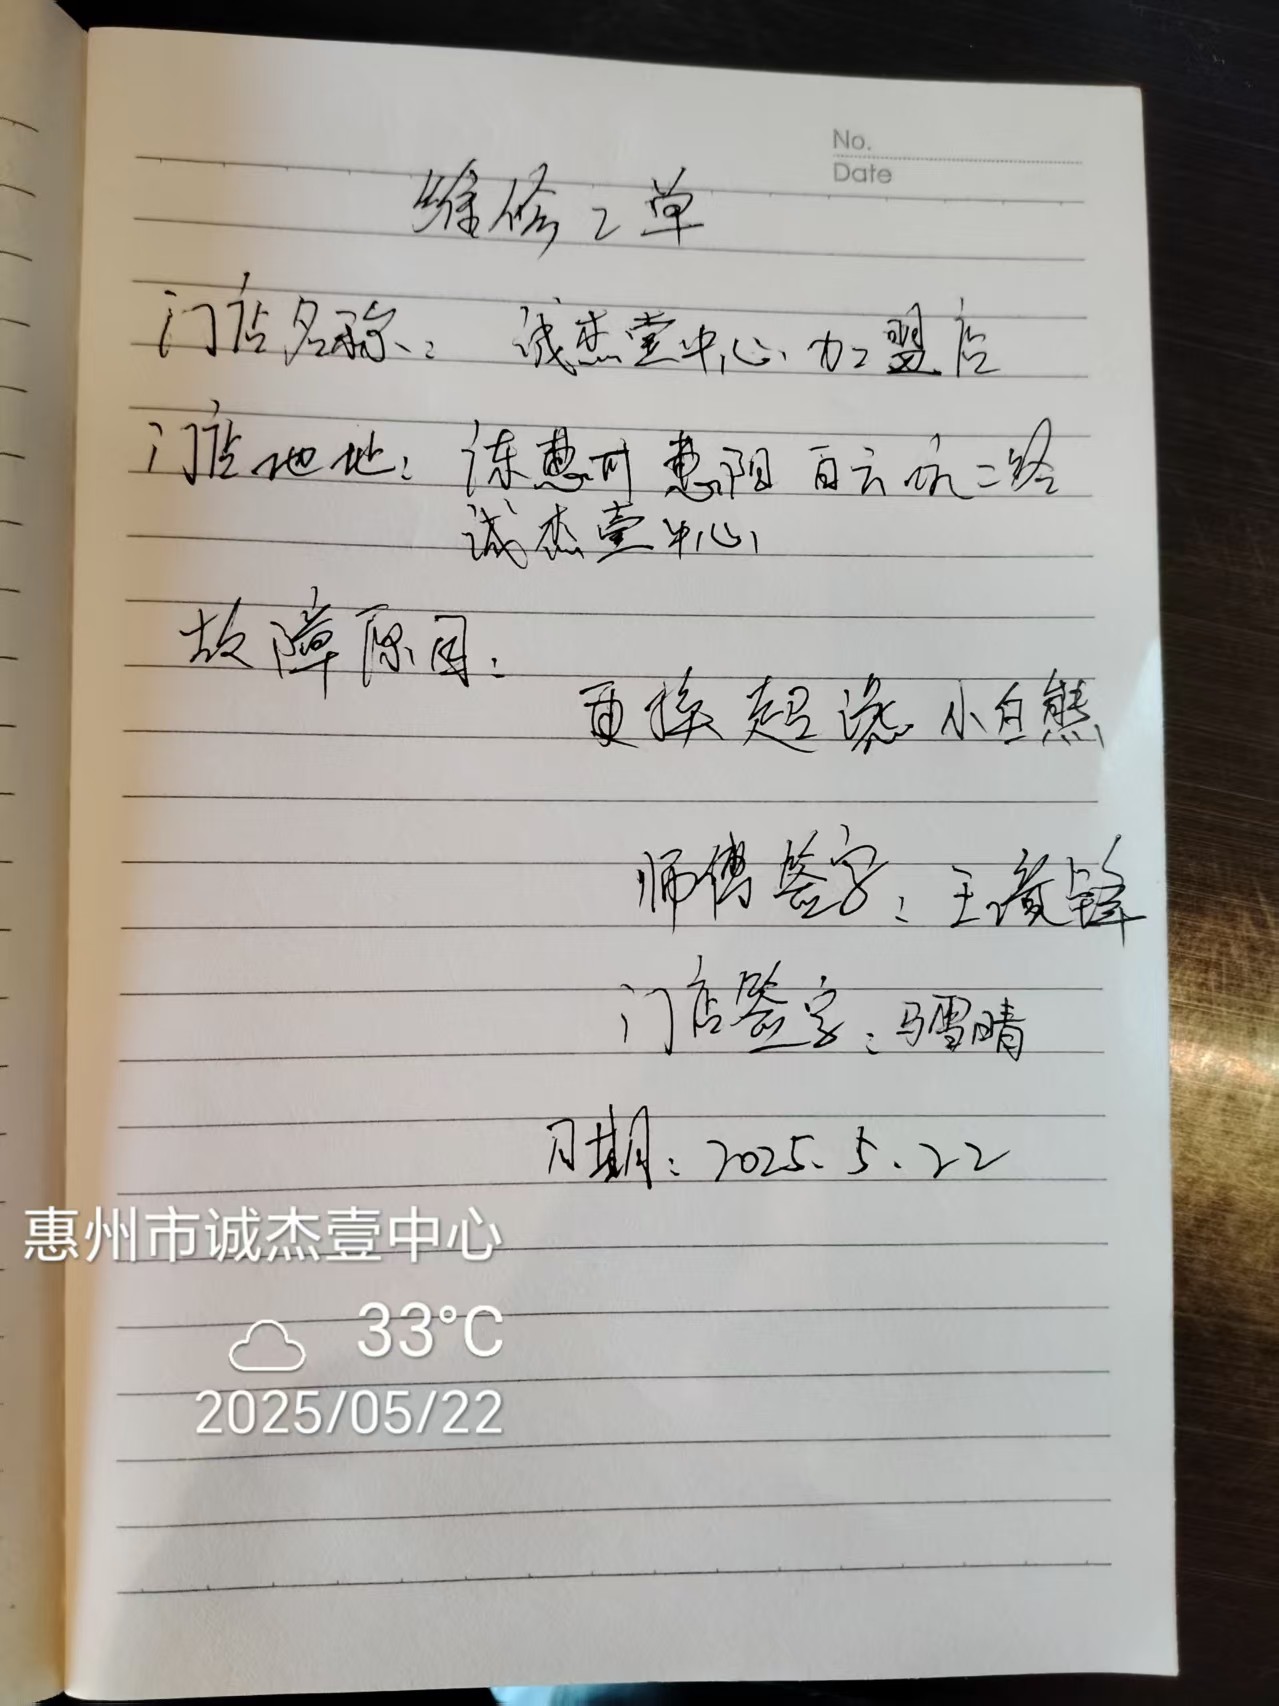 No.
Date
维修工单
门店名称: 诚杰壹中心加盟店
门店地址: 惠州惠阳白云坑二路
诚杰壹中心
故障原因:
更换超滤小白熊
师傅签字: 王 锋
门店签字: 马雪晴
日期: 2025.5.22
惠州市诚杰壹中心
33°C
2025/05/22